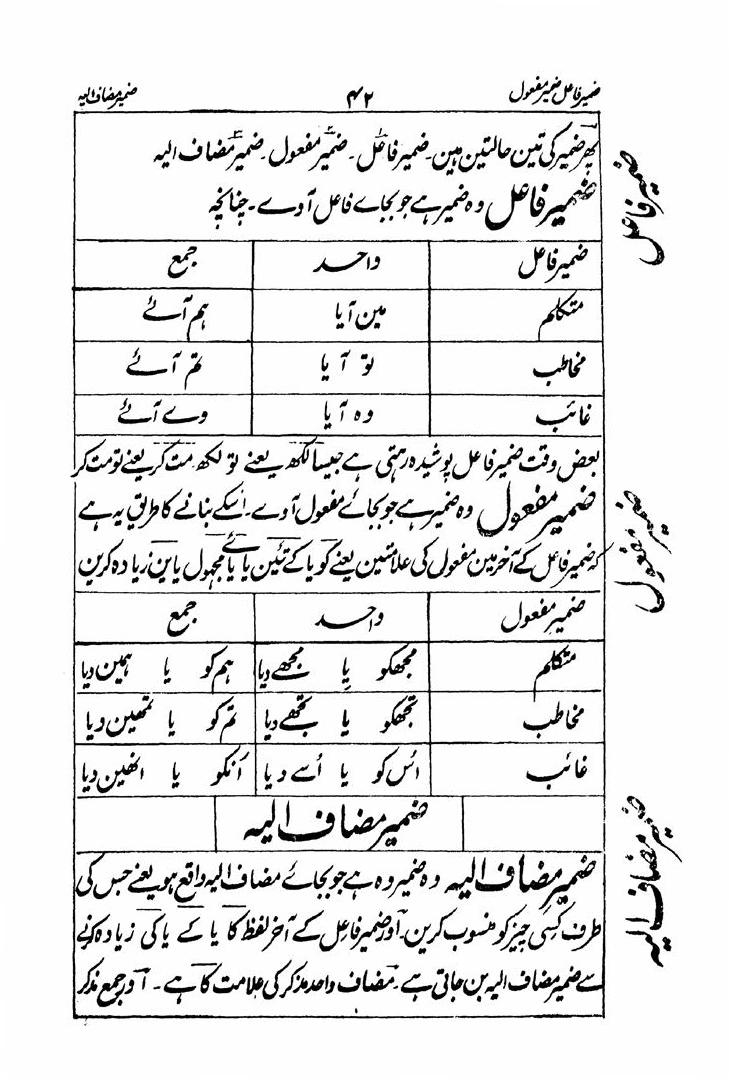 ضمیر فاعل ضمیر مفعول ۴۲ ضمیر مضاف الیہ
پھر ضمیر کی تین حالتین ہین۔ ضمیر فاعل۔ ضمیر مفعول۔ ضمیر مضاف الیہ
ضمیر فاعل
ضمیر فاعل وہ ضمیر ہے جو بجاے فاعل آوے۔ چنانچہ
ضمیر فاعل واحد جمع
متکلم مین آیا ہم آئے
مخاطب تو آیا تم آئے
غائب وہ آیا وے آئے
بعض وقت ضمیر فاعل پوشیدہ رہتی ہے جیسا لکھ یعنے تو لکھ مت کر یعنے تو مت کر
ضمیر مفعول
ضمیر مفعول وہ ضمیر ہے جو بجائے مفعول آوے۔ اسکے بنانے کا طریق یہ ہے
کہ ضمیر فاعل کے آخر مین مفعول کی علامتین یعنے کو یا کے تئین یا یائے مجہول یا ین زیادہ کرین
ضمیر مفعول واحد جمع
متکلم مجھکو یا مجھے دیا ہم کو یا ہمین دیا
مخاطب تجھکو یا تجھے دیا تم کو یا تمھین دیا
غائب اُس کو یا اُسے دیا اُنکو یا انھین دیا
ضمیر مضاف الیہ
ضمیر مضاف الیہ
ضمیر مضاف الیہ وہ ضمیر وہ ہے جو بجائے مضاف الیہ واقع ہو یعنے جس کی
طرف کسی چیز کو منسوب کرین۔ اور ضمیر فاعل کے آخر لفظ کا یا کے یا کی زیادہ کرنے
سے ضمیر مضاف الیہ بن جاتی ہے۔ مضاف واحد مذکر کی علامت کا ہے۔ اور جمع مذکر